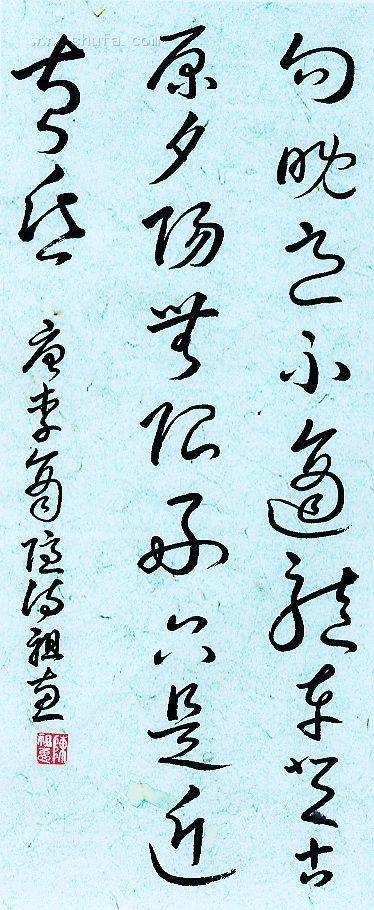 www.shufa.com
向晚意不適驅車登古
原夕陽無限好只是近
黃昏
唐李商隱詩祖惠
陳祖惠